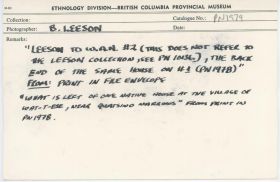 ETHNOLOGY DIVISION—BRITISH COLUMBIA PROVINCIAL MUSEUM
Coll.: Catalogue No.: PN1979
Photographer: B. LEESON Date:
Remarks:
"LEESON TO W.A.N. #2 (THIS DOES NOT REFER
TO THE LEESON COLLECTION, SEE PN ), THE BACK
END OF THE SAME HOUSE ON #1 (PN1978)"
FROM: PRINT IN FILE ENVELOPE
"WHAT IS LEFT OF ONE NATIVE HOUSE AT THE VILLAGE OF
WHAT-T-ESE, NEAR QUATSINO NARROWS" FROM PRINT IN
PN1978.